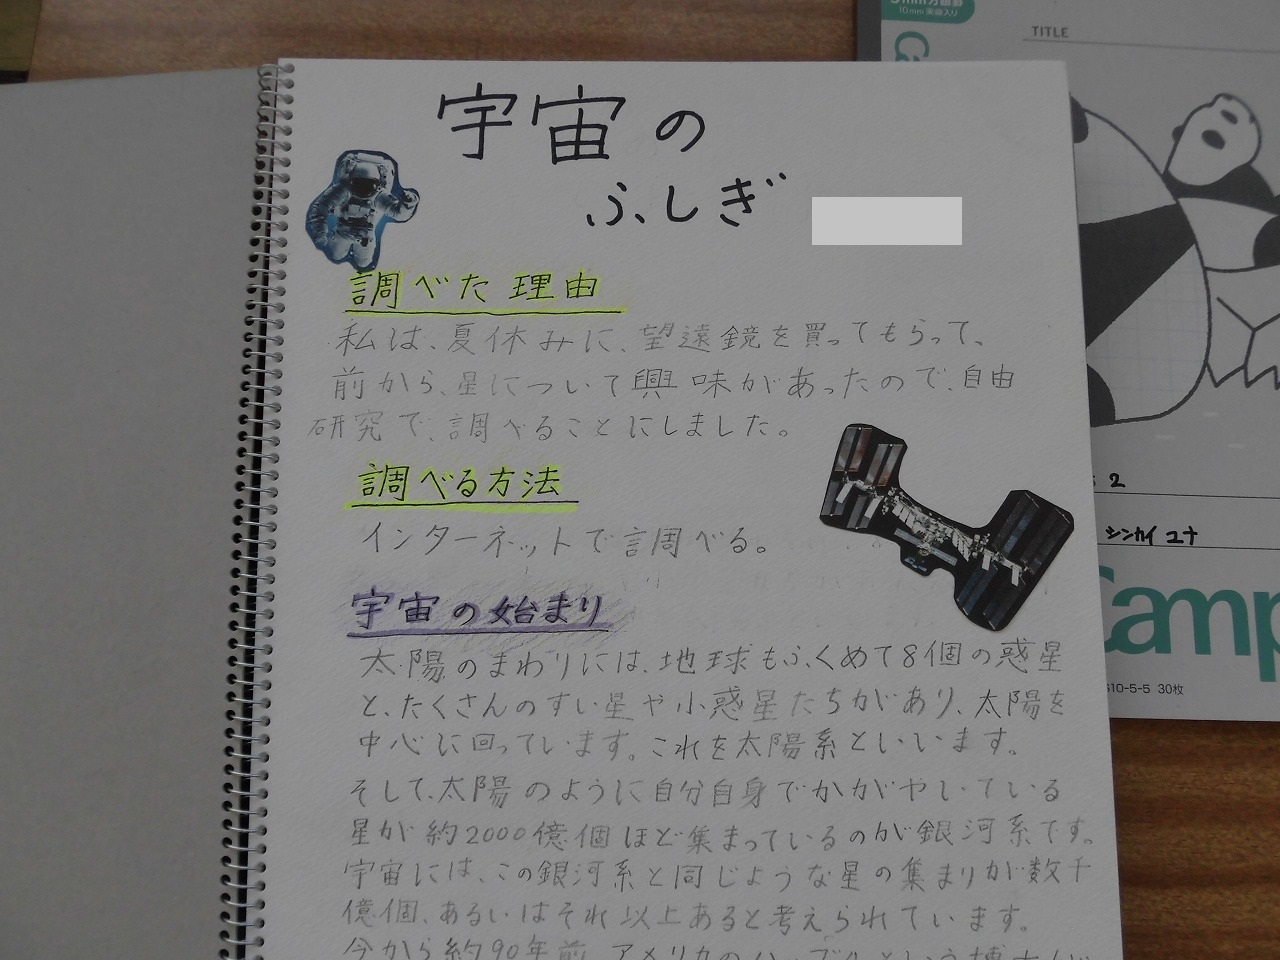 宇宙の
ふしぎ
調べた理由
私は、夏休みに、望遠鏡を買ってもらって、
前から、星について興味があったので、自由
研究で、調べることにしました。
調べる方法
インターネットで調べる。
宇宙の始まり
太陽のまわりには、地球もふくめて8個の惑星
と、たくさんのすい星や小惑星たちがあり、太陽を
中心に回っています。これを太陽系といいます。
そして、太陽のように自分自身でかがやいている
星が約2000億個ほど集まっているのが銀河系です。
宇宙には、この銀河系と同じような星の集まりが数千
億個、あるいはそれ以上あると考えられています。
今から約90年前、アメリカのハッブルという博士が
10mm実線入り
TITLE
2
シンカイ ユナ
Camp
S10-5-5 30枚